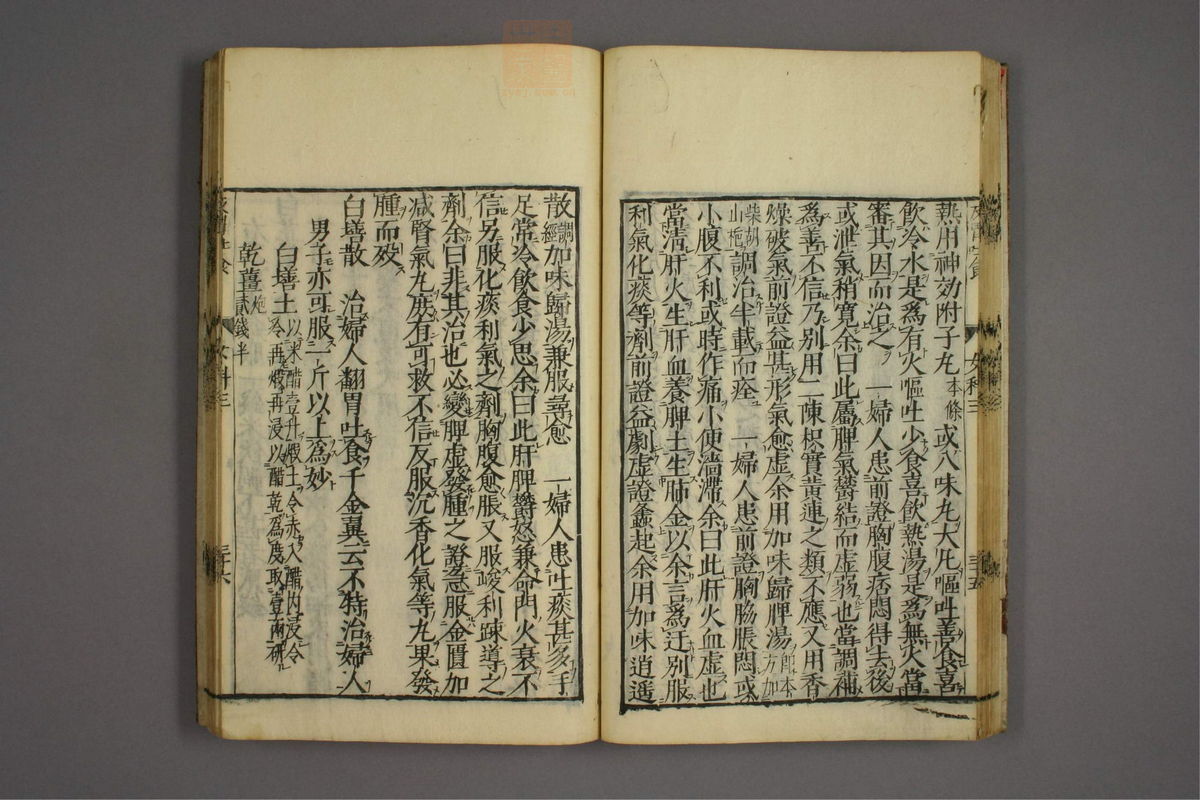 熱用神効附子丸本條或八味丸大凡嘔吐善食喜
飲冷水是爲有火嘔吐少食喜飲熱湯是爲無火當
審其因而治之　一婦人患前證胸腹痞悶得去後
或泄氣稍寛余曰此屬脾氣欝結而虚弱也當調補
爲善不信乃別用二陳枳實黄連之類不應又用香
燥破氣前證益甚形氣愈虚余用加味歸脾湯
柴胡山梔調治半載而痊　一婦人患前證胸脇脹悶或
小腹不利或時作痛小便濇滯余曰此肝火血虚也
當清肝火生肝血養脾土生肺金以余言爲迂別服
利氣化痰等劑前證益劇虚證蠭起余用加味逍遥
散調經加味歸湯兼服尋愈　一婦人患吐痰甚多手
足常冷飲食少思余曰此肝脾欝怒兼命門火衰不
信另服化痰利氣之劑胸腹愈脹又服峻利疎導之
劑余曰非其治也必變脾虚發腫之證急服金匱加
减腎氣丸庶有可救不信反服沉香化氣等丸果發
腫而殁
白墡散　治婦人翻胃吐食千金翼云不特治婦人
男子亦可服一斤以上爲妙
白墡土以米醋壹升煅土令赤入醋内浸令冷再煅再浸以醋乾爲度取壹兩研
乾薑炮貳錢半
女科三
三十五
女科三
三十六